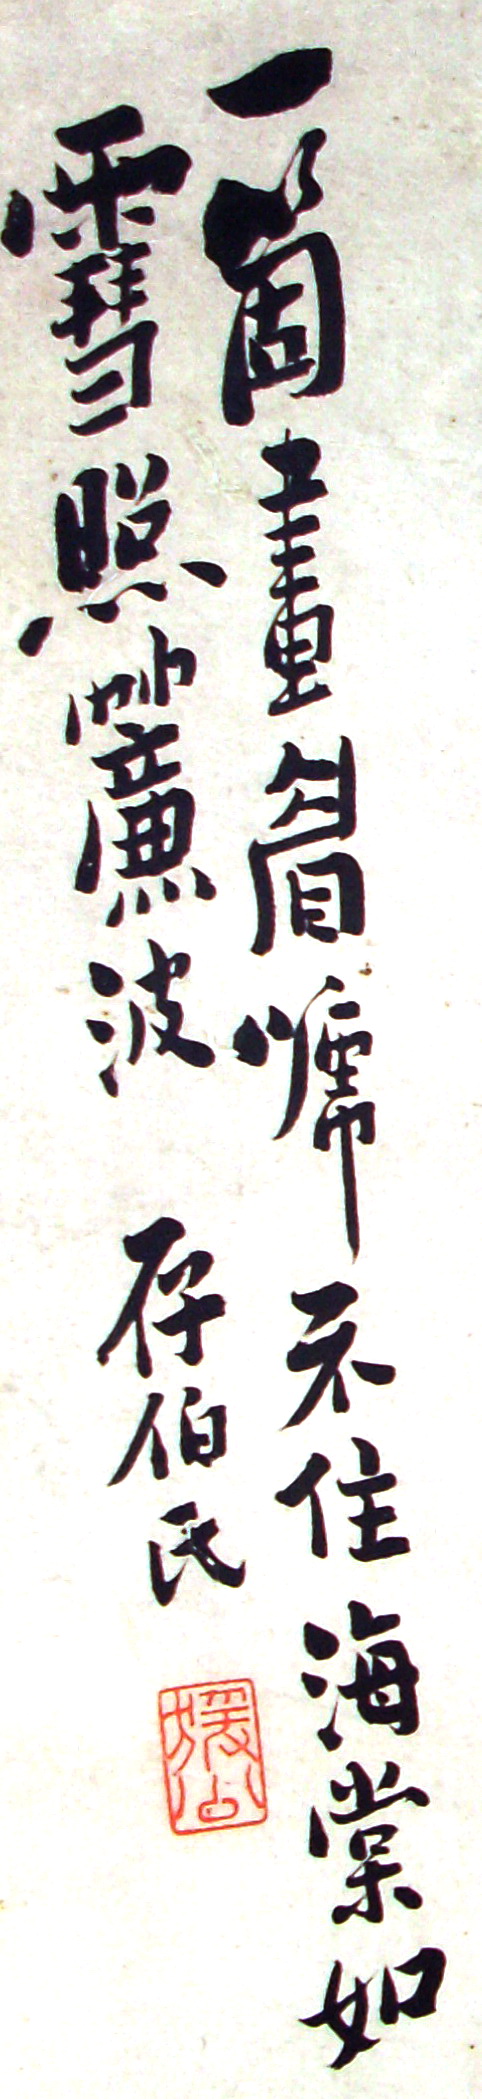 一箇畫眉啼不住海棠如
雪照簾波
存伯氏